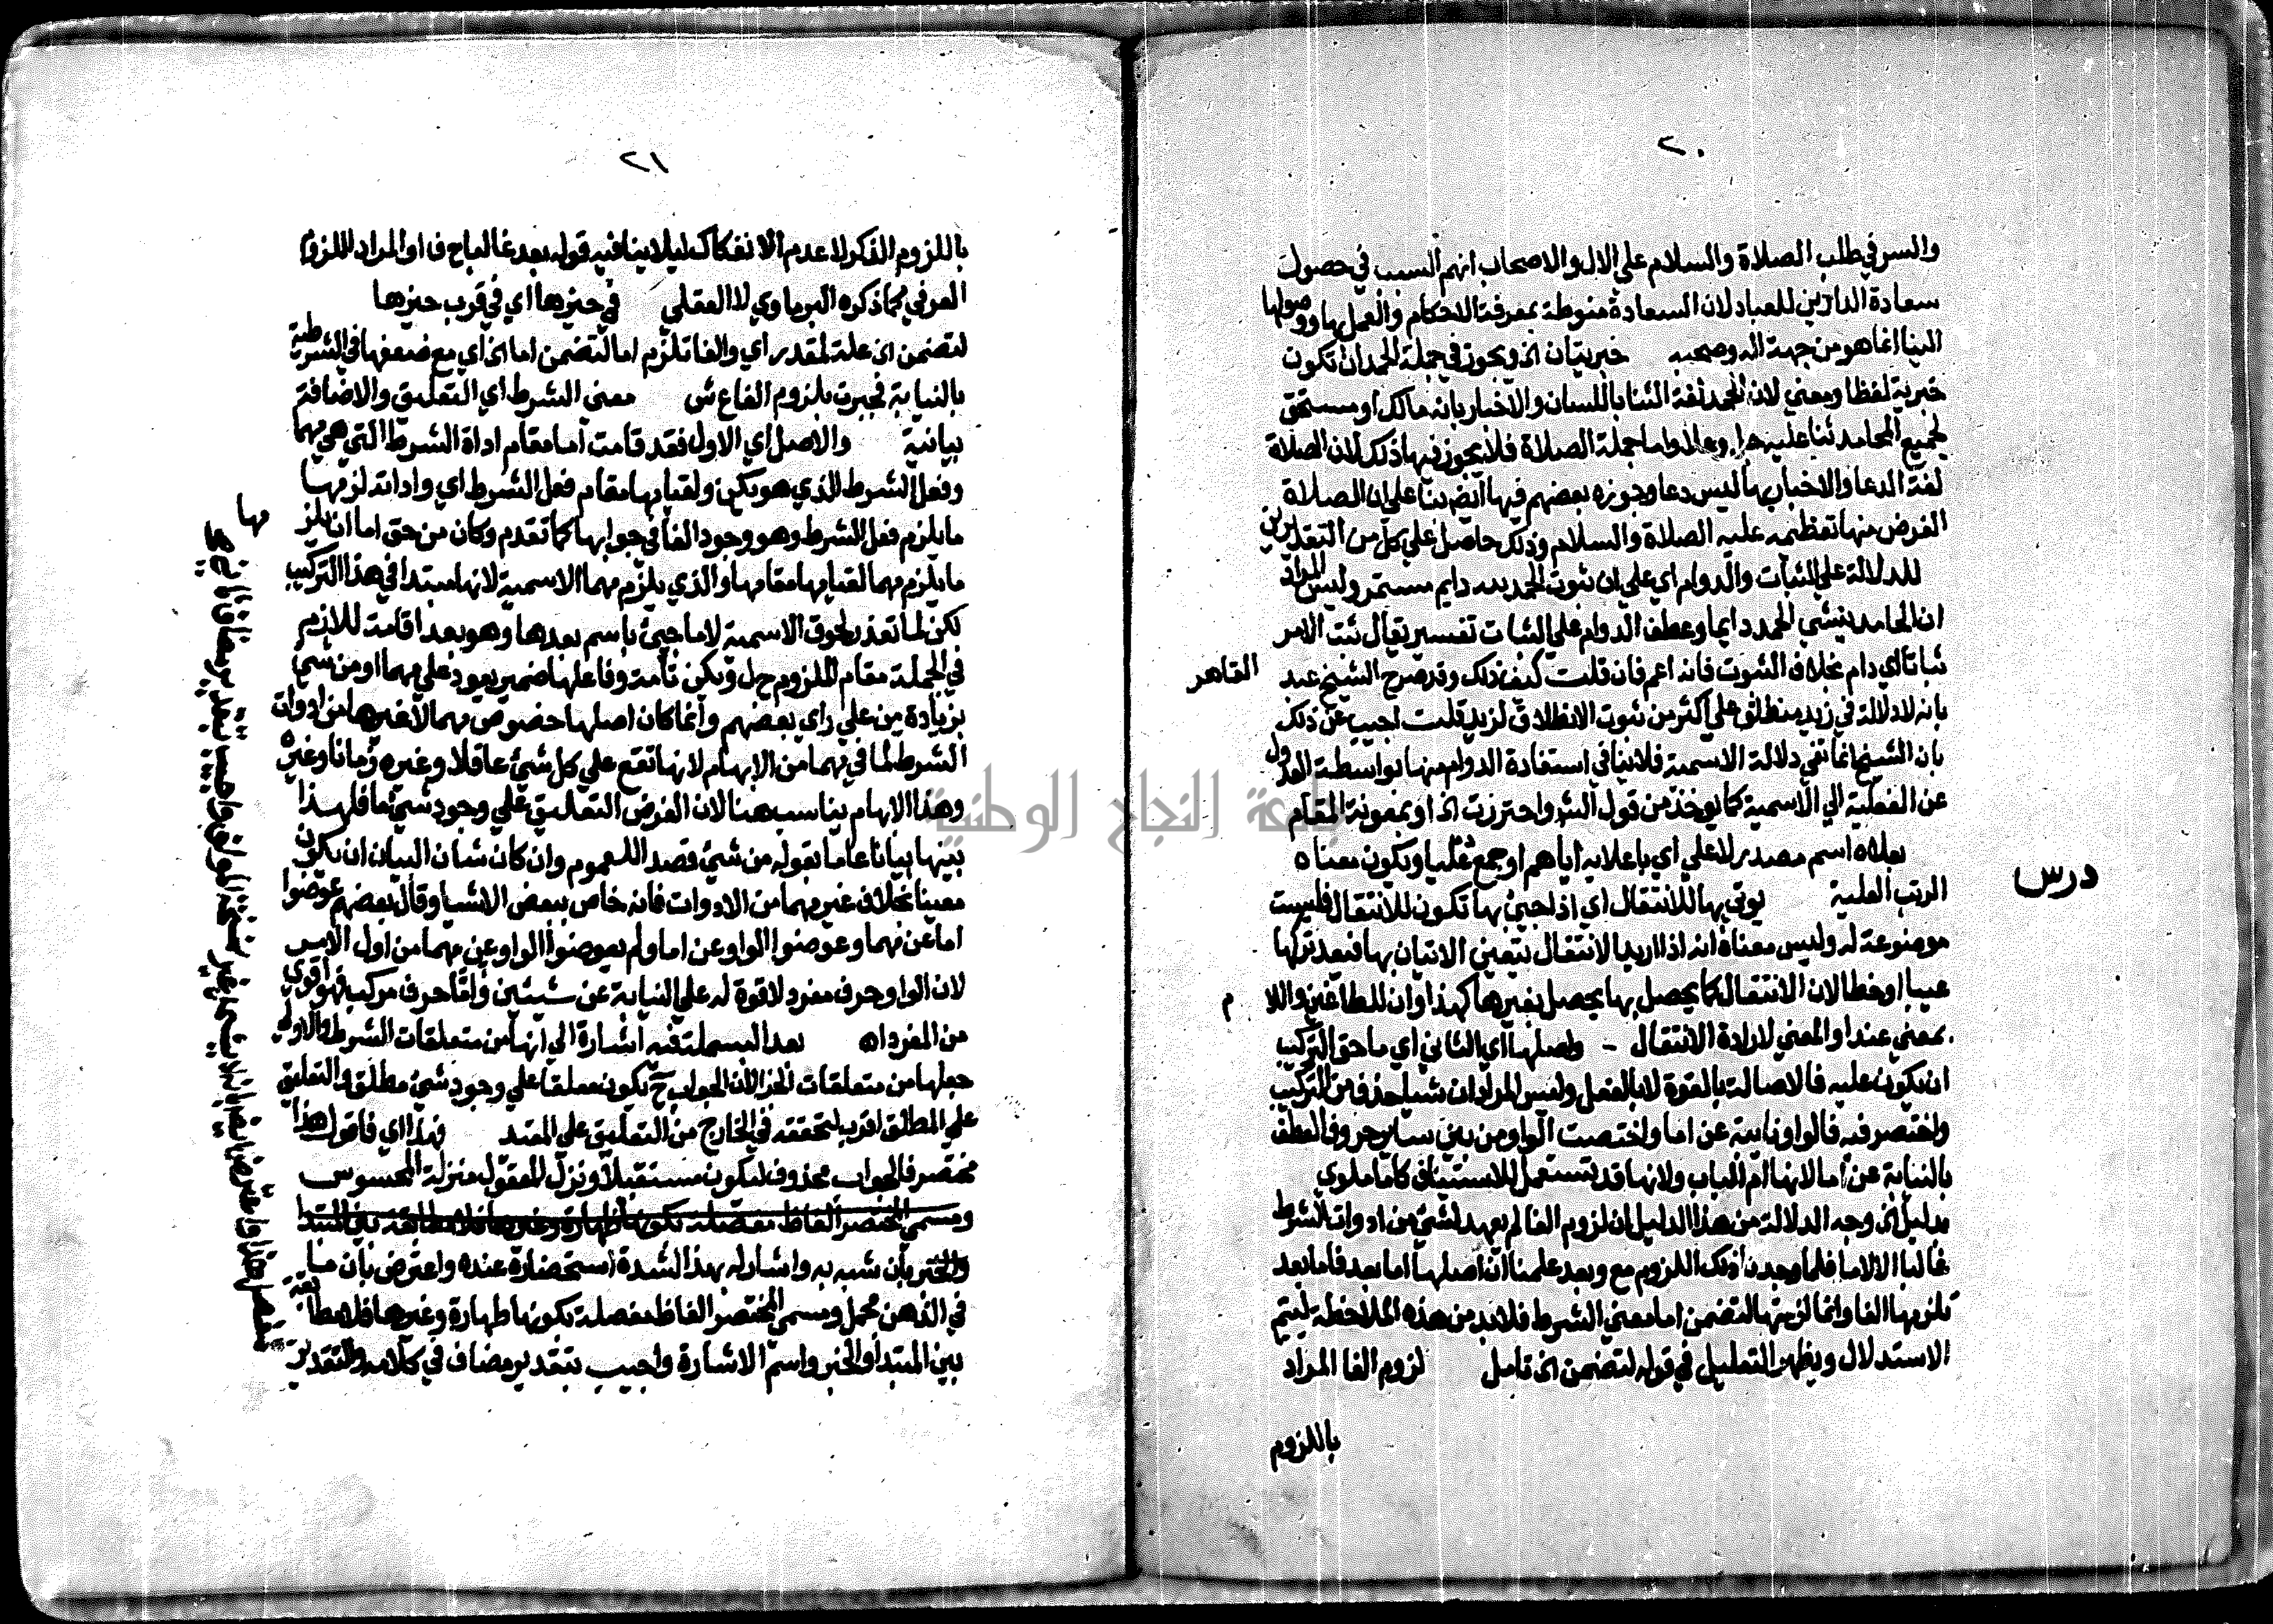 ٢٠
والسر في طلب الصلاة والسلام علي الال والاصحاب انهم السبب في حصول
سعادة الدارين للعباد لان السعادة منوطة بمعرفة الاحكام والعمل بها ووصولها
الينا انما هو من جهة اله وصحبه خبريتان الخ ويجوز في جملة الحمد ان تكون
خبرية لفظا ومعني لان الحمد لغة الثنا باللسان والاخبار بانه مالك او مستحق
لجميع المحامد ثنا عليه واما جملة الصلاة فلا يجوز فيها ذلك لان الصلاة
لغة الدعا والاخبار بها ليس دعا وجوزه بعضهم فيها ايضا بنا علي ان الصلاة
الغرض منها تعظيمه عليه الصلاة والسلام وذلك حاصل علي كل من التقديرين
للدلالة علي الثبات والدوام اي علي ان ثبوت الحمد لله دايم مستمر وليس المراد
ان الحامد ينشي الحمد دايما وعطف الدوام علي الثبات تفسير يقال ثبت الامر
ثباتا اي دام بخلاف الثبوت فانه اعم فان قلت كيف ذلك وقد صرح الشيخ عبد القاهر
بانه لا دلالة في زيد منطلق علي اكثر من ثبوت الانطلاق لزيد قلت اجيب عن ذلك
بان الشيخ انما نفي دلالة الاسمية فلا ينافي استفادة الدوام منها بواسطة العدول
عن الفعلية الي الاسمية كما يوخذ من قول الش واحترزت الخ او بمعونة المقام
درس
بعلاه اسم مصدر لاعلي اي باعلايه اياهم او جمع عُليا ويكون معناه
الرتب العلية يوتي بها للانتقال اي اذا جيئ بها تكون للانتقال فليست
موضوعة له وليس معناه انه اذا اريد الانتقال يتعين الاتيان بها فيعد تركها
عيبا او خطا لان الانتقال كما يحصل بها يحصل بغيرها كهذا وان للطاغين واللام
بمعني عند او المعني لارادة الانتقال - واصلها اي الثاني اي ما حق التركيب
ان يكون عليه فالاصالة بالقوة لا بالفعل وليس المراد ان شيا حذف من التركيب
واختصر فيه فالواو نايبة عن اما واختصت الواو من بين ساير حروف العطف
بالنيابة عن اما لانها ام الباب ولانها قد تستعمل للاستيناف كاما ملوي
بدليل الخ وجه الدلالة من هذا الدليل ان لزوم الفا لم يعهد لشي من ادوات الشرط
غالبا الا لاما فلما وجدنا ذلك اللزوم مع وبعد علمنا ان اصلها اما بعد فاما بعد
تلزمها الفا وانما لزمتها لتضمن اما معني الشرط فلا بد من هذه الملاحظة ليتم
الاستدلال ويظهر التعليل في قوله لتضمن الخ تامل لزوم الفا المراد
باللزوم
٢١
باللزوم الذكر لا عدم الانفكاك ليلا ينافيه قوله بعد غالبا ح ف او المراد اللزوم
العرفي كما ذكره البرماوي لا العقلي في حيزها اي في قرب حيزها
لتضمن الخ علة لمقدر اي والفا تلزم اما لتضمن اما الخ اي مع ضعفها في الشرطية
بالنيابة فجبرت بلزوم الفا ع ش معني الشرط اي التعليق والاضافة
بيانية والاصل اي الاول فقد قامت اما مقام اداة الشرط التي هي مهما
وفعل الشرط الذي هو يكن ولقيامها مقام فعل الشرط اي واداته لزمها
ما يلزم فعل الشرط وهو وجود الفا في جوابها كما تقدم وكان من حق اما ان يلزمها
ما يلزم مهما لقيامها مقامها والذي يلزم مهما الاسمية لانها مبتدا في هذا التركيب
لكن لما تعذر لحوق الاسمية لاما جيئ باسم بعدها وهو بعد اقامة للازم
في الجملة مقام الملزوم ح ل ويكن تامة وفاعلها ضمير يعود علي مهما او من شيئ
بزيادة من علي راي بعضهم وانما كان اصلها خصوص مهما لا غيرها من ادوات
الشرط لما في مهما من الابهام لانها تقع علي كل شيئ عاقلا وغيره زمانا وغيره
وهذا الابهام يناسب هنا لان الغرض التعليق علي وجود شيئ ما فلهذا
بينها بيانا عاما بقوله من شيئ قصد اللعموم وان كان شان البيان ان يكون
معينا بخلاف غير مهما من الادوات فانه خاص ببعض الاشيا وقال بعضهم عوضوا
اما عن مهما وعوضوا الواو عن اما ولم يعوضوا الواو عن مهما من اول الامر
لان الواو حرف مفرد لا قوة له علي النيابة عن شيئين واما حرف مركب فهو اقوي
من المفرد اه بعد البسملة فيه اشارة الي انها من متعلقات الشرط والاولي
جعلها من متعلقات الجزا لان الجواب ح يكون معلقا علي وجود شيئ مطلق والتعليق
علي المطلق اقرب لتحققه في الخارج من التعليق علي المقيد فهذا اي فاقول هذا
مختصر فالجواب محذوف ليكون مستقبلا ونزل المعقول منزلة المحسوس
ومسمي المختصر الفاظ مفصلة بكونها طهارة وغيرها فلا مطابقة بين المبتدا
والخبر بان شبه به واشار له بهذا لشدة استحضاره عنده واعترض بان ما
في الذهن مجمل ومسمي المختصر الفاظ مفصلة بكونها طهارة وغيرها فلا مطابقة
بين المبتدا والخبر واسم الاشارة واجيب بتقدير مضاف في كلامه والتقدير
جامعة النجاح الوطنية